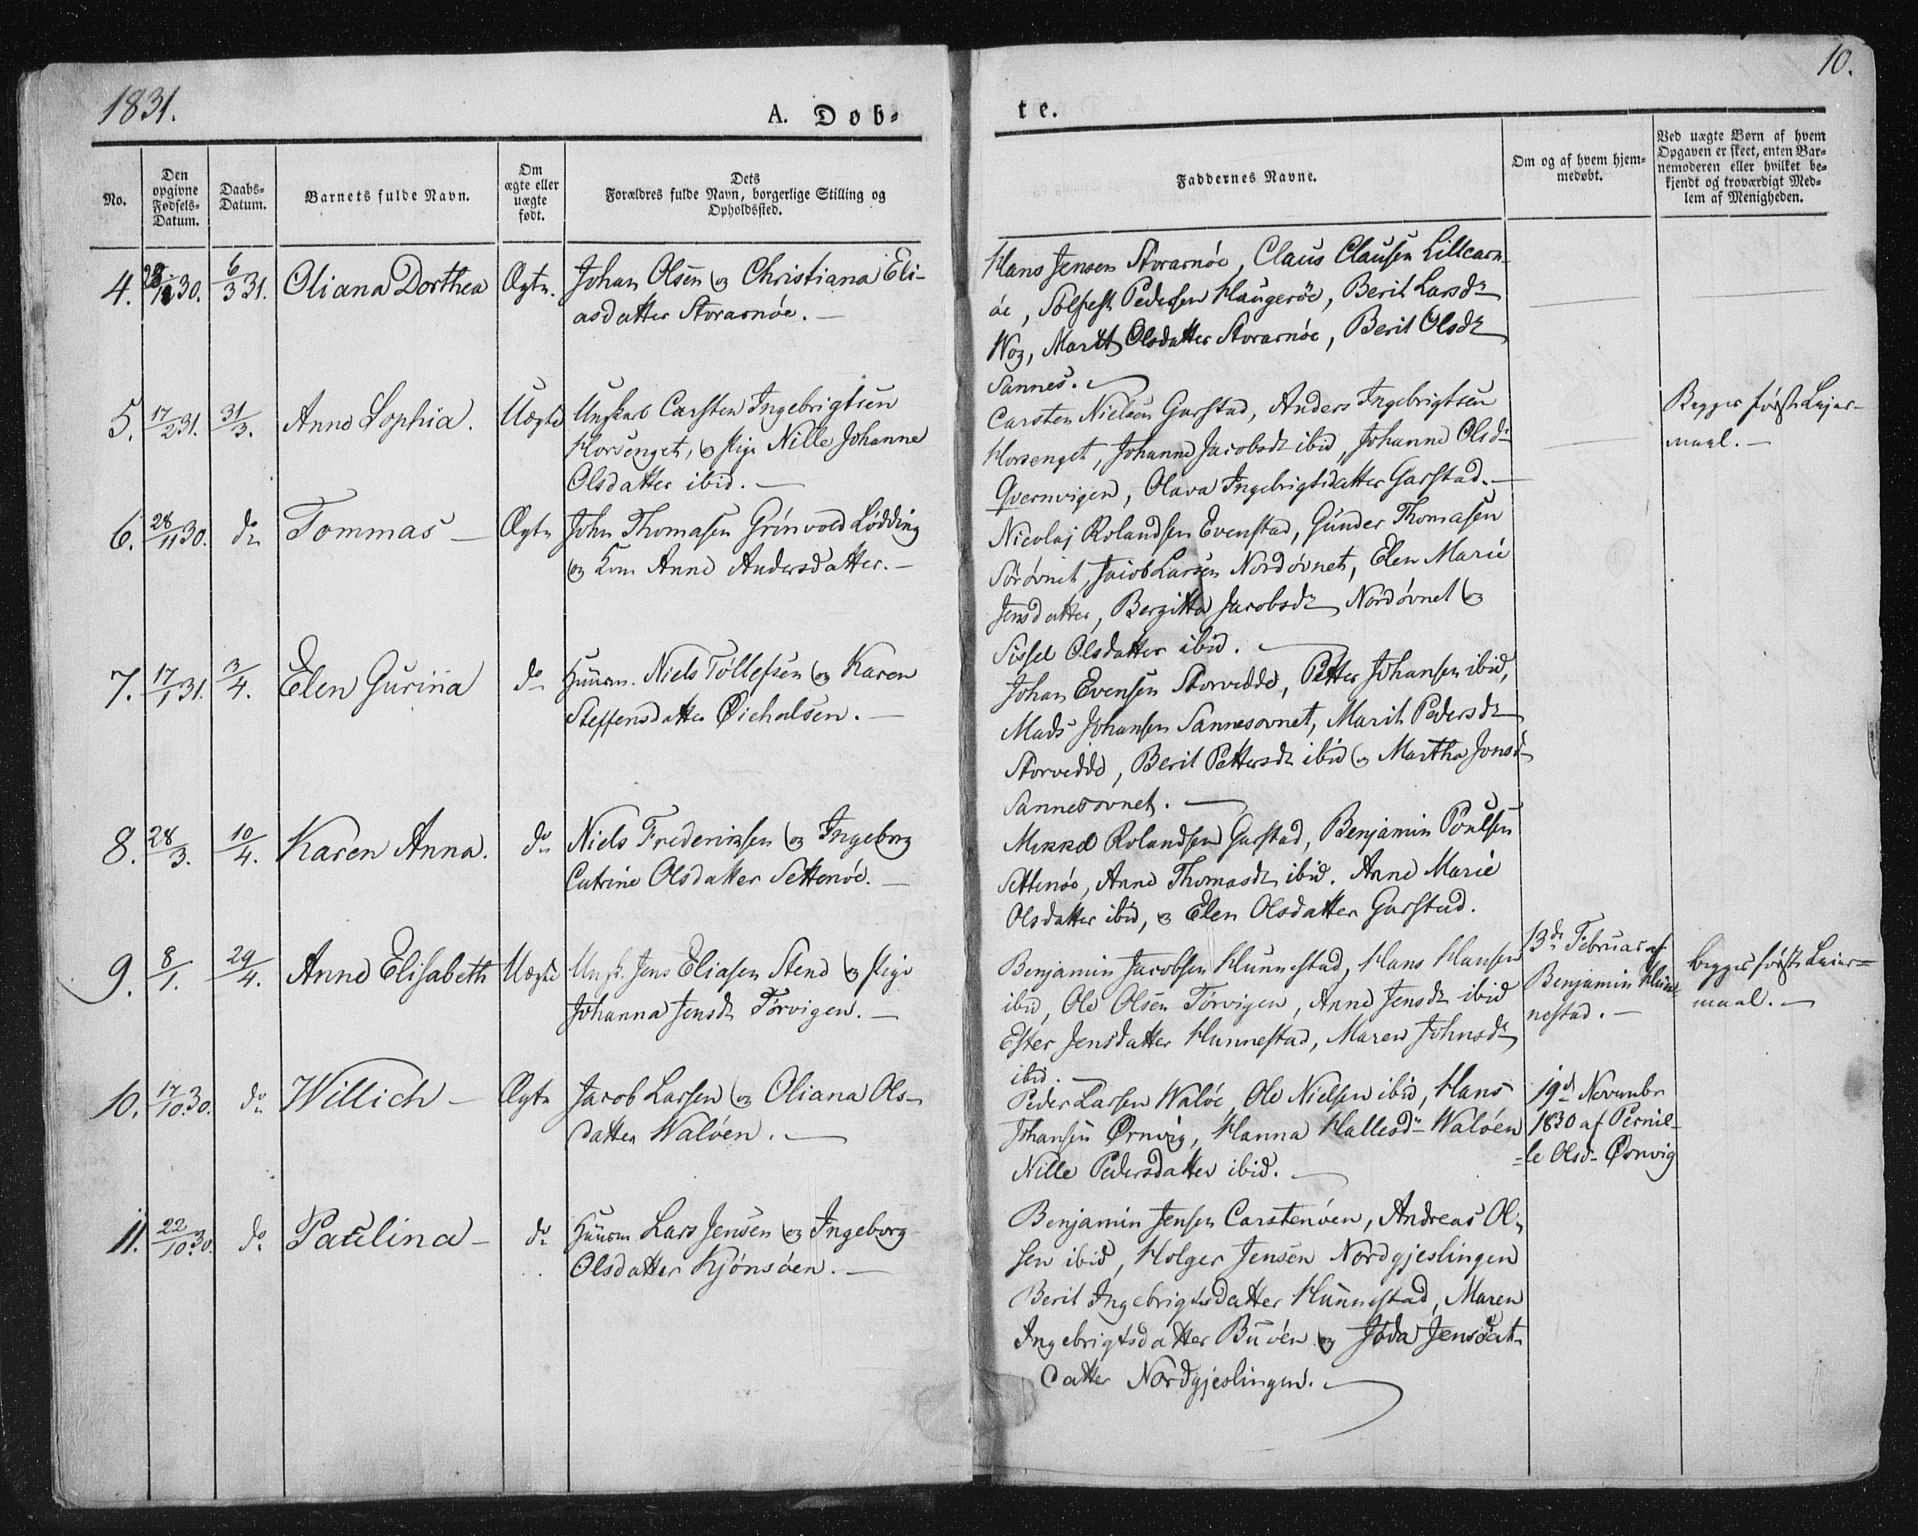 1831.
A. Døb-
te.
10.
No.
Den opgivne Fødsels-Datum.
Daabs-Datum.
Barnets fulde Navn.
Om ægte eller uægte født.
Dets Forældres fulde Navn, borgerlige Stilling og Opholdssted.
Faddernes Navne.
Om og af hvem hjem-medøbt.
Ved uægte Børn af hvem Opgaven er skeet, enten Bar-nemoderen eller hvilket be-kjendt og troværdigt Med-lem af Menigheden.
4. 30. 6/3 31. Oliana Dorthea Ægte. Johan Olsen og Christiana Eli-
asdatter Storarnöe. —
Hans Jensen Storarnöe, Claus Clausen Lillearn-
öe, Pedersen Haugeröe, Berit Larsdr
Wog, Marit Olsdatter Storarnöe, Berit Olsdr
Sannes. —
5. 17/2 31. 31/3. Anne Sophia. Uægte Ungkarl Carsten Ingebrigtsen
Horsenget, og Pige Nille Johanne
Olsdatter ibid. —
Carsten Nielsen Garstad, Anders Ingebrigtsen
Horsenget, Johanne Jacobsdr ibid, Johanne Olsdr
Qvernvigen, Olava Ingebrigtsdatter Garstad. —
Begges første Leier-
maal. —
6. 28/11 30. do Tommas — Ægte John Thomasen Grönvold Lødding
og Kone Anne Andersdatter. —
Nicolaj Rolandsen Evenstad, Gunder Thomasen
Sörövnet, Jacob Larsen Nordövnet, Elen Marie
Jensdatter, Bergitta Jacobsdr Nordövnet og
Sissel Olsdatter ibid. —
7. 17/1 31. 3/4. Elen Gurina do Huusm. Niels Tollefsen og Karen
Steffensdatter Øieholsen. —
Johan Evensen Storvedde, Petter Johansen ibid,
Mads Johansen Sannesovnet, Marit Pedersdr
Storvedde, Berit Pettersdr ibid og Martha Jonsdr
Sannesovnet. —
8. 28/3. 10/4. Karen Anna. do Niels Frederiksen og Ingeborg
Catrine Olsdatter Settenöe. —
Mikkel Rolandsen Garstad, Benjamin Poulsen
Settenöe, Anne Thomasdr ibid. Anne Marie
Olsdatter ibid, og Elen Olsdatter Garstad.
9. 8/1. 29/4. Anne Elisabeth Uægte Ungk. Jens Eliasen Stend og Pige
Johanna Jensdr Törvigen. —
Benjamin Jacobsen Hunnestad, Hans Hansen
ibid, Ole Olsen Törvigen, Anne Jensdr ibid
Ester Jensdatter Hunnestad, Maren Johnsdr
ibid. —
13de Februar af
Benjamin Hun-
nestad. —
begges første Leier-
maal. —
10. 17/10 30. do Willich — Ægte Jacob Larsen og Oliana Ols-
datter Walöen. —
Peder Larsen Walöe, Ole Nielsen ibid, Hans
Johansen Ørnvig, Hanna Hallesdr Walöen
Nille Pedersdatter ibid. —
19d November
1830 af Pernil-
le Olsd- Ørnvig
11. 22/10 30. do Paulina — do Huusm Lars Jensen og Ingeborg
Olsdatter Kjönsöen. —
Benjamin Jensen Carstenöen, Andreas Ol-
sen ibid, Holger Jensen Nordgjeslingen
Berit Ingebrigtsdatter Hunnestad, Maren
Ingebrigtsdatter Buöen og
datter Nordgjeslingen. —